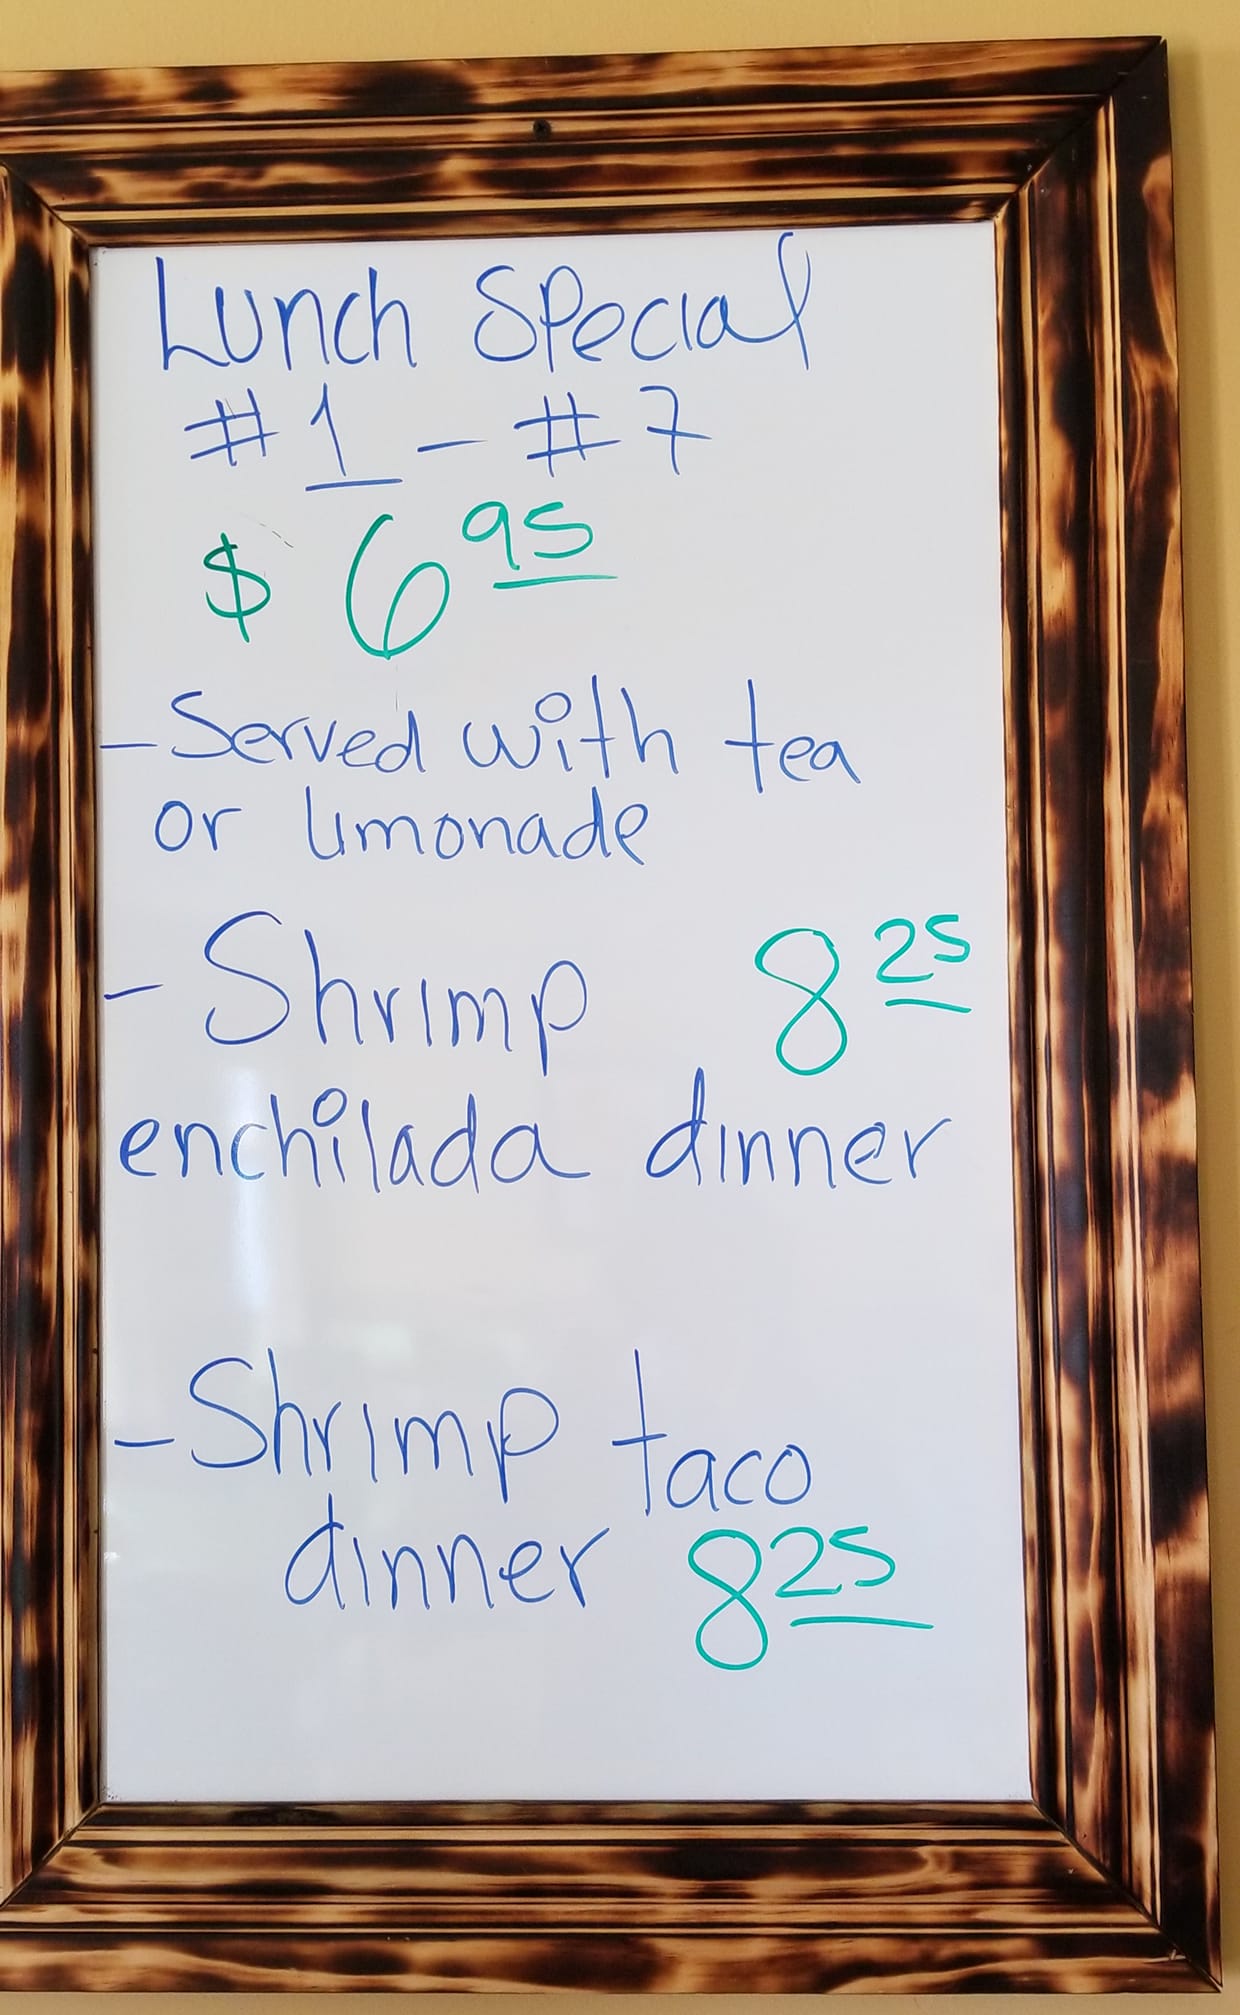 Lunch Special
#1 - #7
$ 6 95
- Served with tea
or limonade
- Shrimp 8 25
enchilada dinner
- Shrimp taco
dinner 8 25